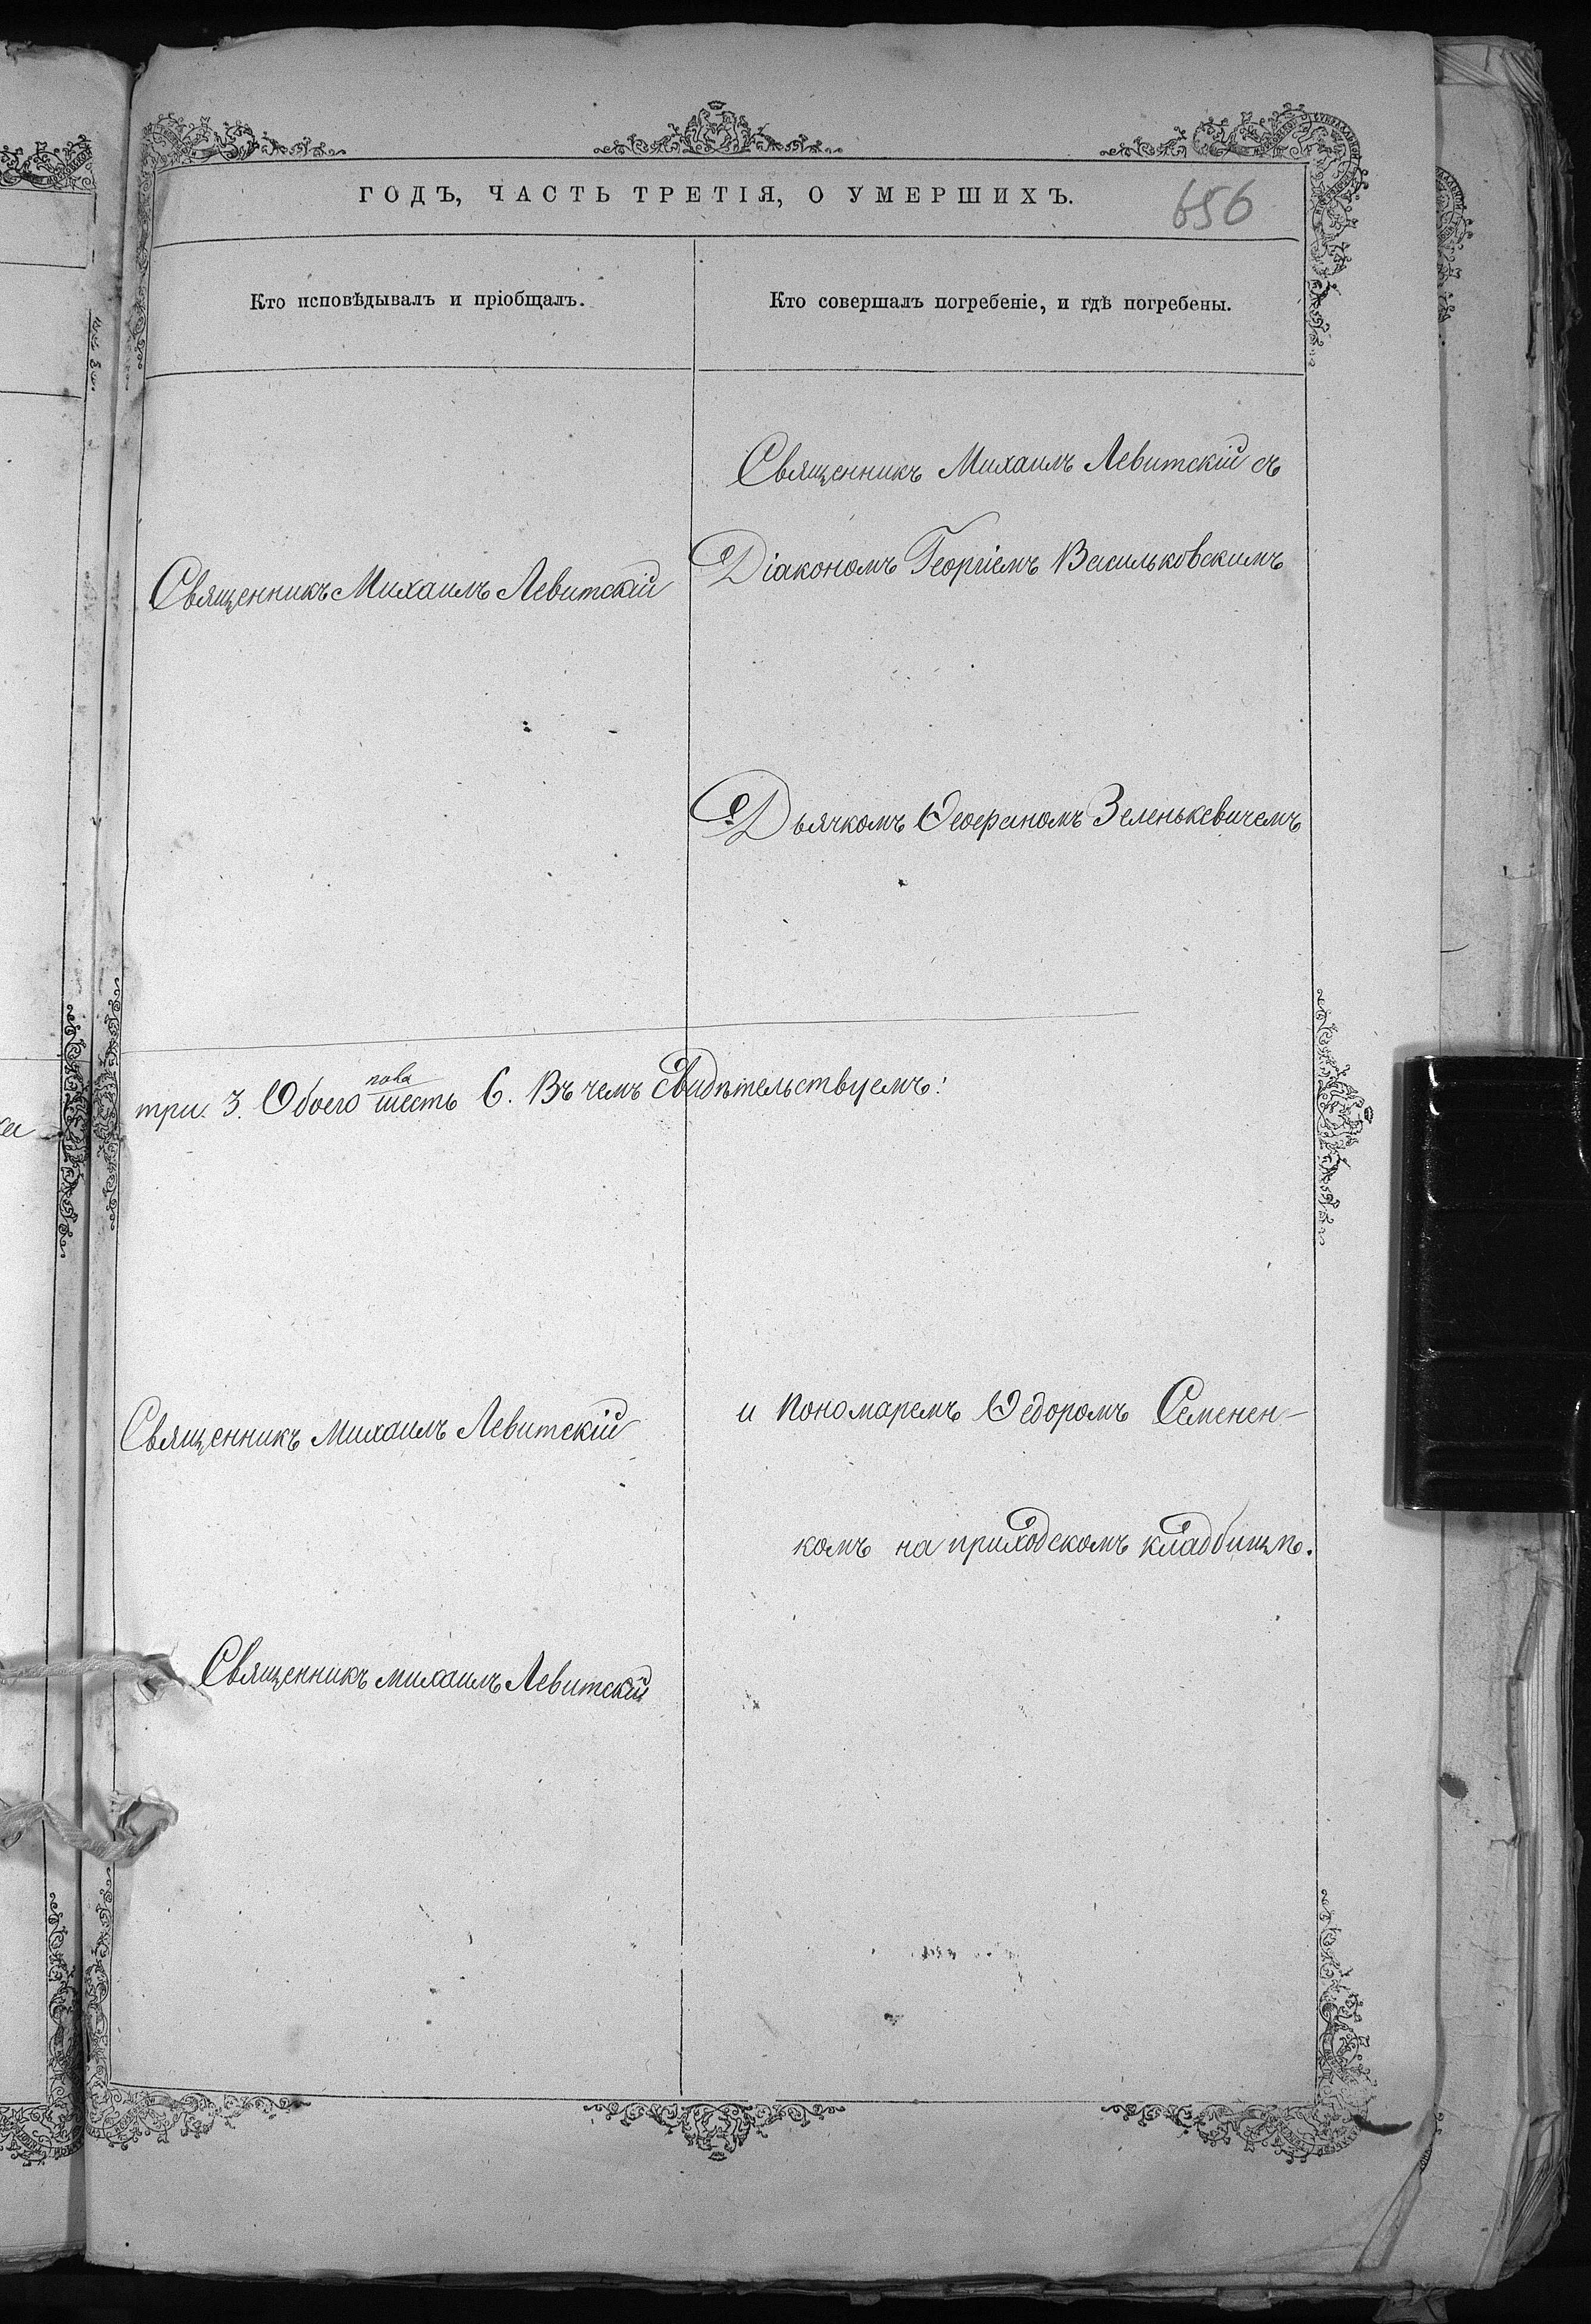 ГОДЪ, ЧАСТЬ ТРЕТІЯ, О УМЕРШИХЪ.
656
Кто исповѣдывалъ и пріобщалъ.
Кто совершалъ погребеніе, и гдѣ погребены.
Священникъ Михаилъ Левитскій съ
Діакономъ Георгіемъ Васильковскимъ
Священникъ Михаилъ Левитскій
Дьячкомъ Ѳеофаномъ Зеленькевичемъ
пола
три. 3. Обоего шесть 6. Въ чемъ свидѣтельствуемъ:
и пономаремъ Ѳедоромъ Семенен-
Священникъ Михаилъ Левитскій
комъ на приходскомъ кладбищѣ.
Священникъ михаилъ Левитскій